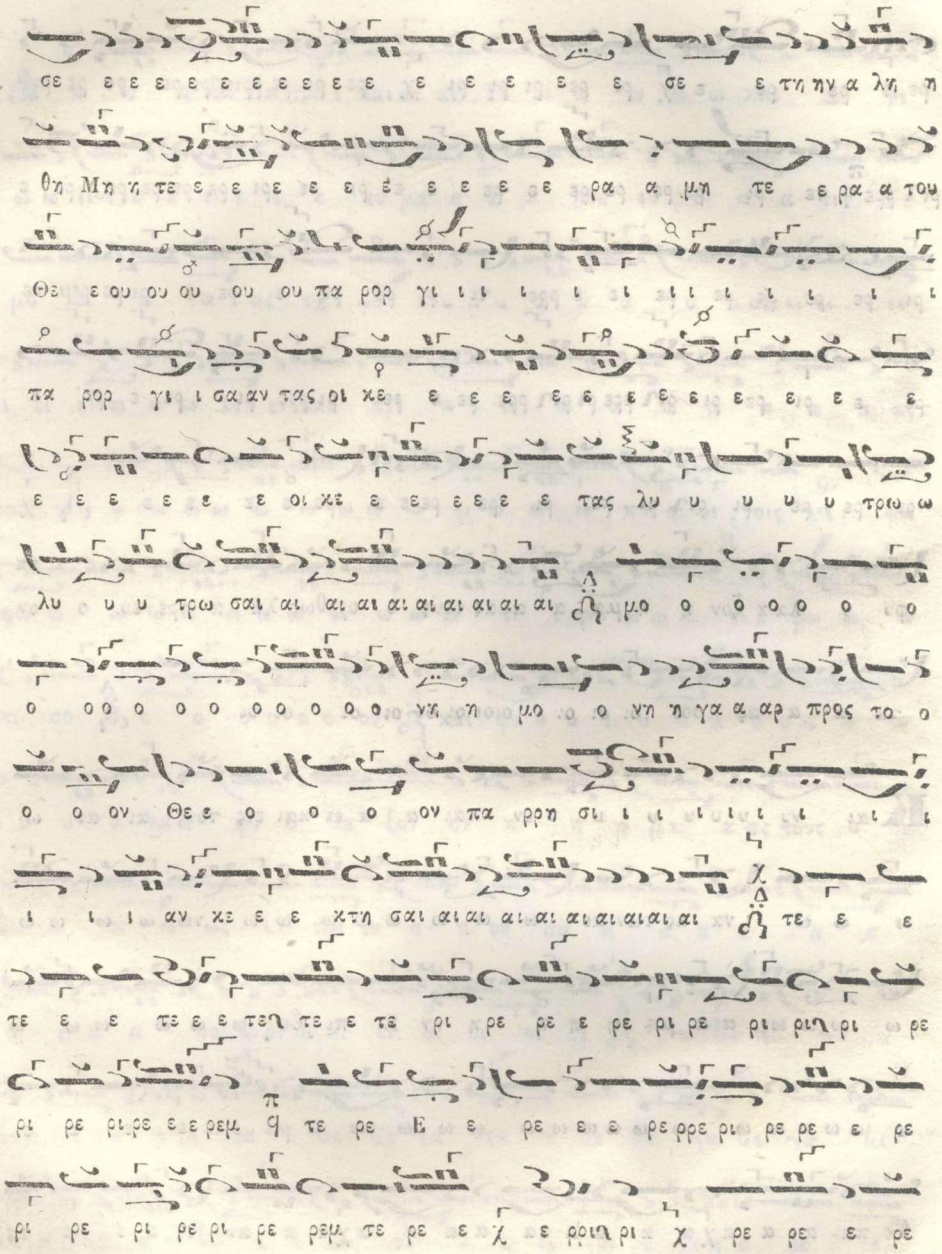 σε εεε ε ε ε ε ε ε ε ε ε ε ε ε ε ε ε σε ε τη ην α λη η
θη Μη η τε ε ε ε ε ε ε ε ε ε ε ρα α μη τε ε ρα α του
Θε ε ου ου ου ου ου πα ρορ γι ι ι ι ι ι ι ι ι ι ι ι ι
πα ρορ γι ι σα αν τας οι κε ε ε ε ε ε ε ε ε ε ε ε ε ε
ε ε ε ε ε ε οι κε ε ε ε ε ε ε τας λυ υ υ υ υ υ τρω ω
λυ υ υ τρω σαι αι αι αι αι αι αι αι αι αι μο ο ο ο ο ο ο
ο ο ο ο ο ο ο ο ο ο νη η μο ο νη η γα α αρ προς το ο
ο ο ον Θε ε ο ο ο ον πα ρρη σι ι ι ι ι ι ι ι ι
ι ι ι αν κε ε ε κτη σαι αι αι αι αι αι αι αι αι αι χ τε ε ε
τε ε ε τε ε ε τε τε ε τε ρι ρε ρε ε ρε ρι ρε ρι ρι ρι ρε
ρι ρε ρι ρε ε ε ρεμ π q τε ρε Ε ε ρε ε ε ρε ρρε ρι ρε ρε ε ρε
ρι ρε ρι ρε ρι ρε ρεμ τε ρε ε χ α ε ρρι ρι χ ρε ρε ε ρε